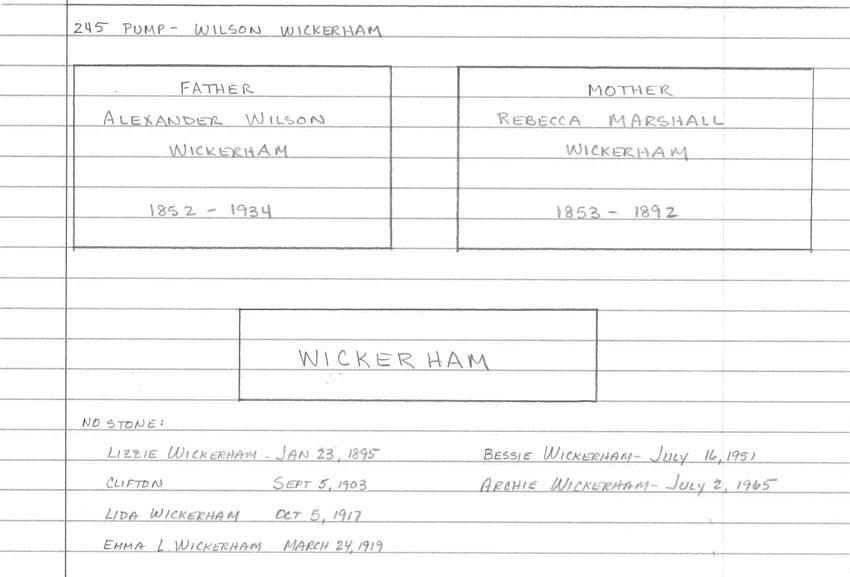 245 PUMP - WILSON WICKERHAM
FATHER
ALEXANDER WILSON
WICKERHAM
1852 - 1934
MOTHER
REBECCA MARSHALL
WICKERHAM
1853 - 1892
WICKERHAM
NO STONE:
LIZZIE WICKERHAM - JAN 23, 1895
CLIFTON SEPT 5, 1903
LIDA WICKERHAM OCT 5, 1917
EMMA L. WICKERHAM MARCH 24, 1919
BESSIE WICKERHAM - JULY 16, 1951
ARCHIE WICKERHAM - JULY 2, 1965